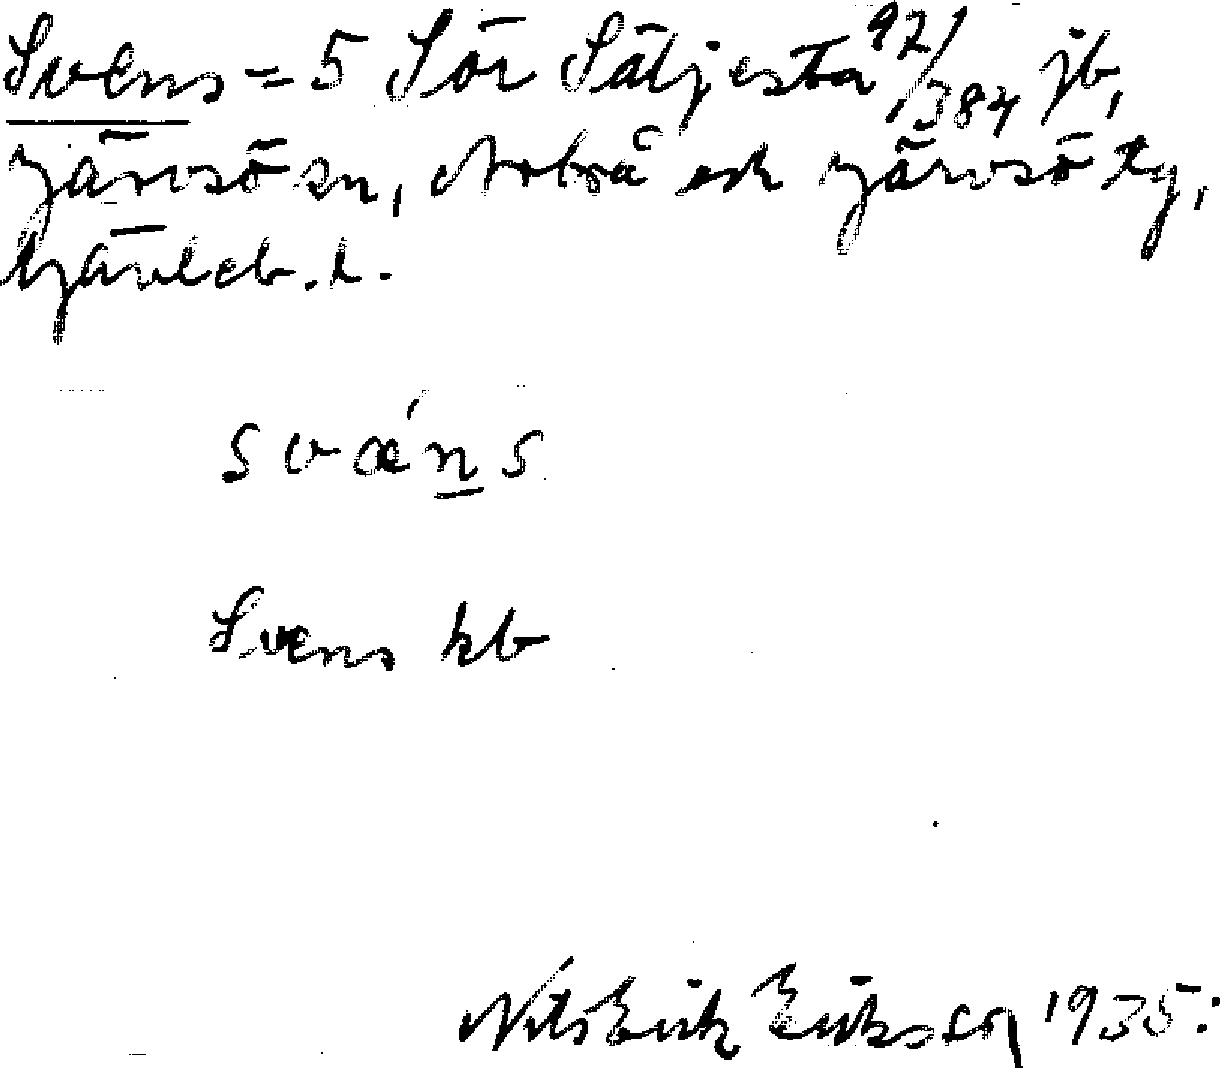 Svens = 5 Sör Säljesta 92/384 jb,
Järvsö sn, Arbrå och Järvsö tg,
Gävleb. l.
svǽn̲s
Svens kb
Nils Erik Eriksson 1935.